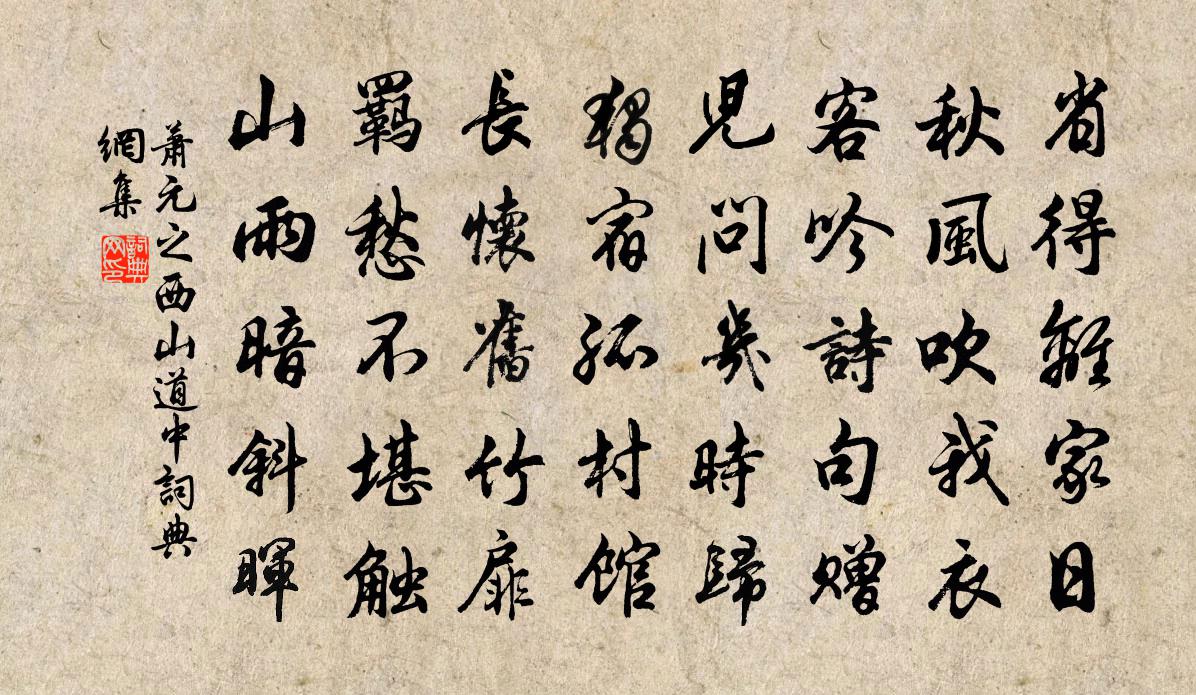 省得離家日
秋風吹我衣
客吟詩句贈
兒問幾時歸
獨宿孤村館
長懷舊竹扉
羁愁不堪觸
山雨暗斜暉
蕭元之西山道中詞典
網集
詞典网印